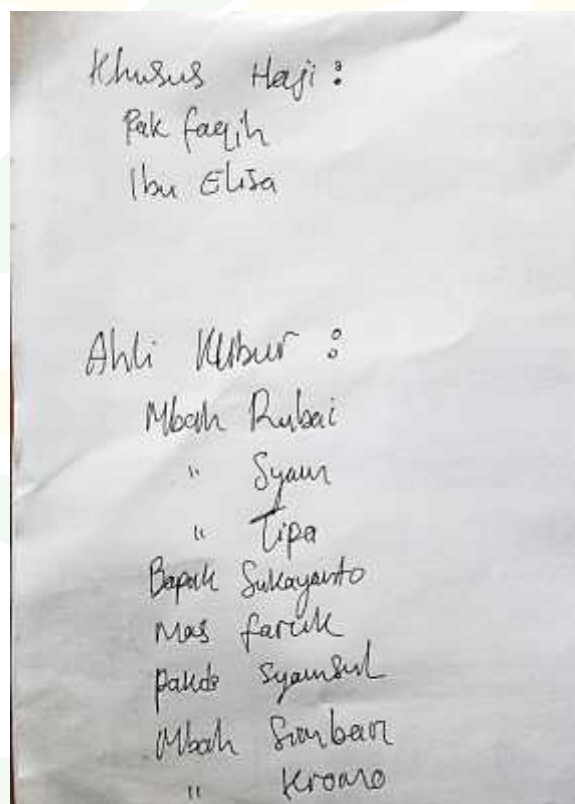 Khusus Haji :
Pak faqih
Ibu Elisa
Ahli Kubur :
Mbah Rubai
" Syam
" Tipa
Bapak Sukayanto
Mas faruk
pakde Syamsul
Mbah Simban
" Kromo